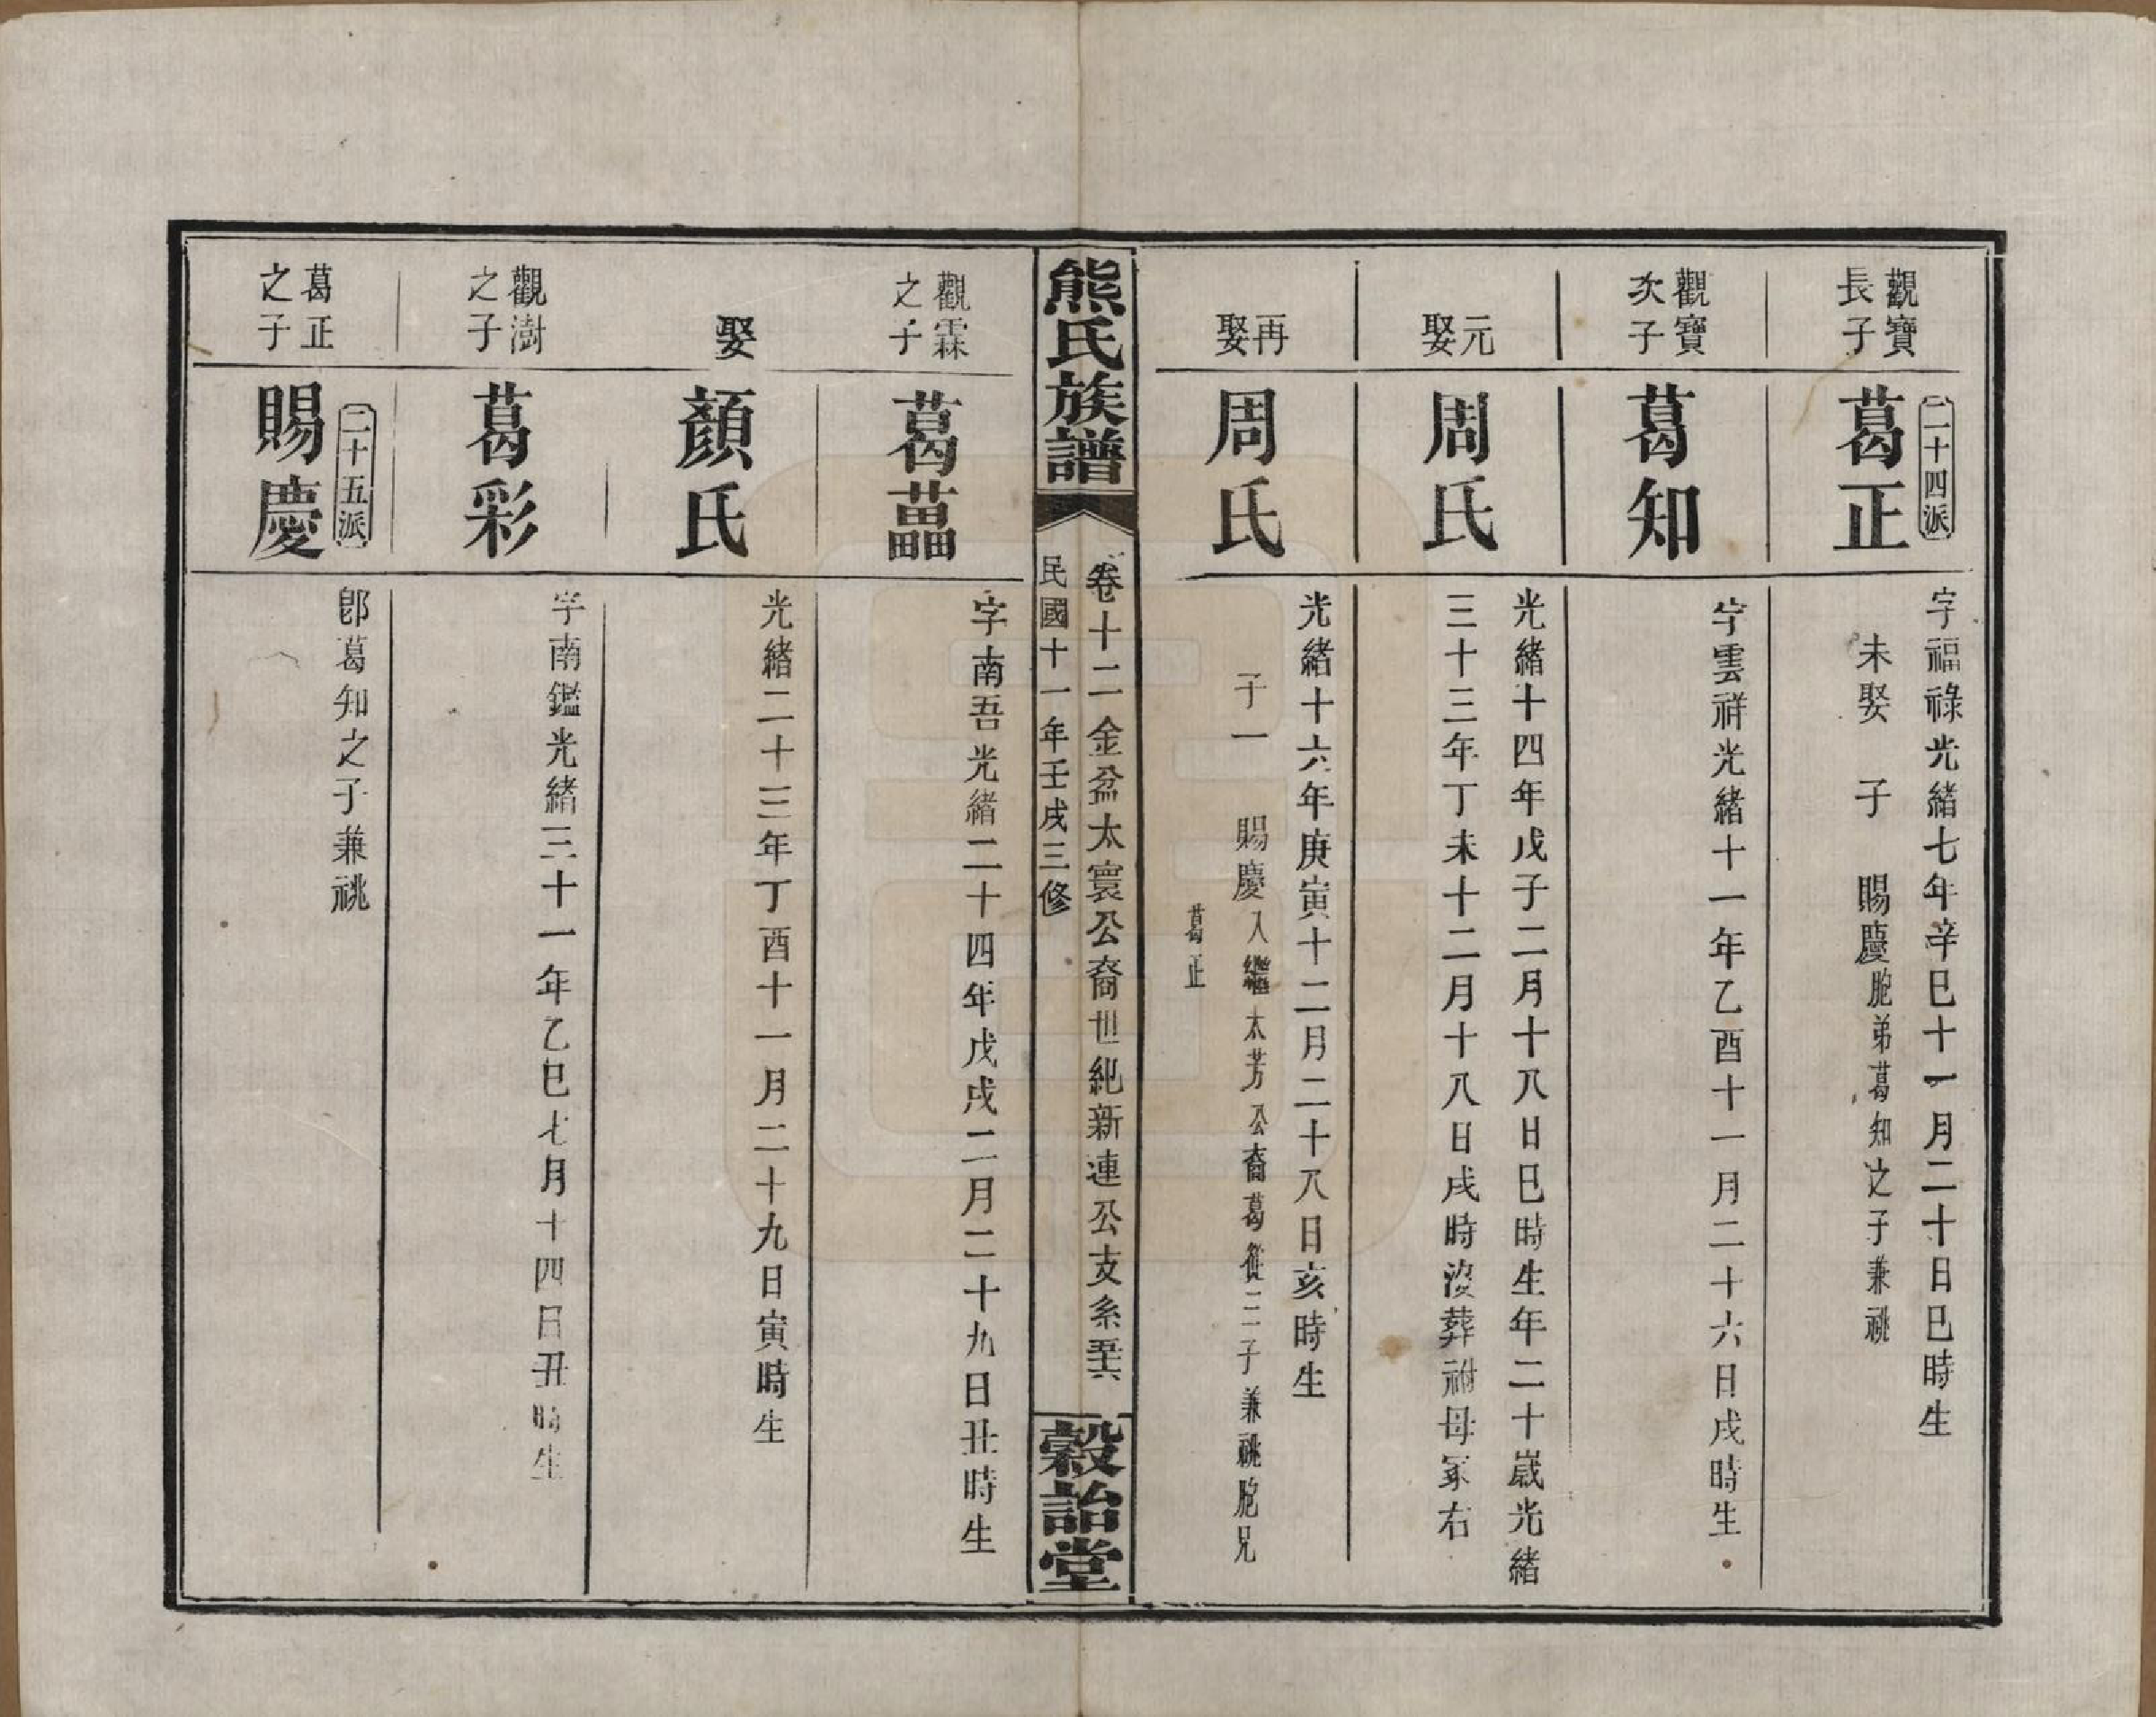 觀寶
長子
二十四派
葛正
字福祿光緒七年辛巳十一月二十日巳時生
未娶　子　賜慶胞弟葛知之子兼祧
觀寶
次子
葛知
字雲祥光緒十一年乙酉十一月二十六日戌時生
元
娶
周氏
光緒十四年戊子二月十八日巳時生年二十歲光緒
三十三年丁未十二月十八日戌時沒葬祔母冢右
再
娶
周氏
光緒十六年庚寅十二月二十八日亥時生
子一　賜慶入繼太芳公裔葛從三子兼祧胞兄
葛正
熊氏族譜
卷十二金盆太寰公裔世紀新連公支系
民國十一年壬戌三修
穀詒堂
觀霖
之子
葛藟
字南吾光緒二十四年戊戌二月二十九日丑時生
娶
顏氏
光緒二十三年丁酉十一月二十九日寅時生
觀澍
之子
葛彩
字南鑑光緒三十一年乙巳七月十四日丑時生
葛正
之子
二十五派
賜慶
卽葛知之子兼祧